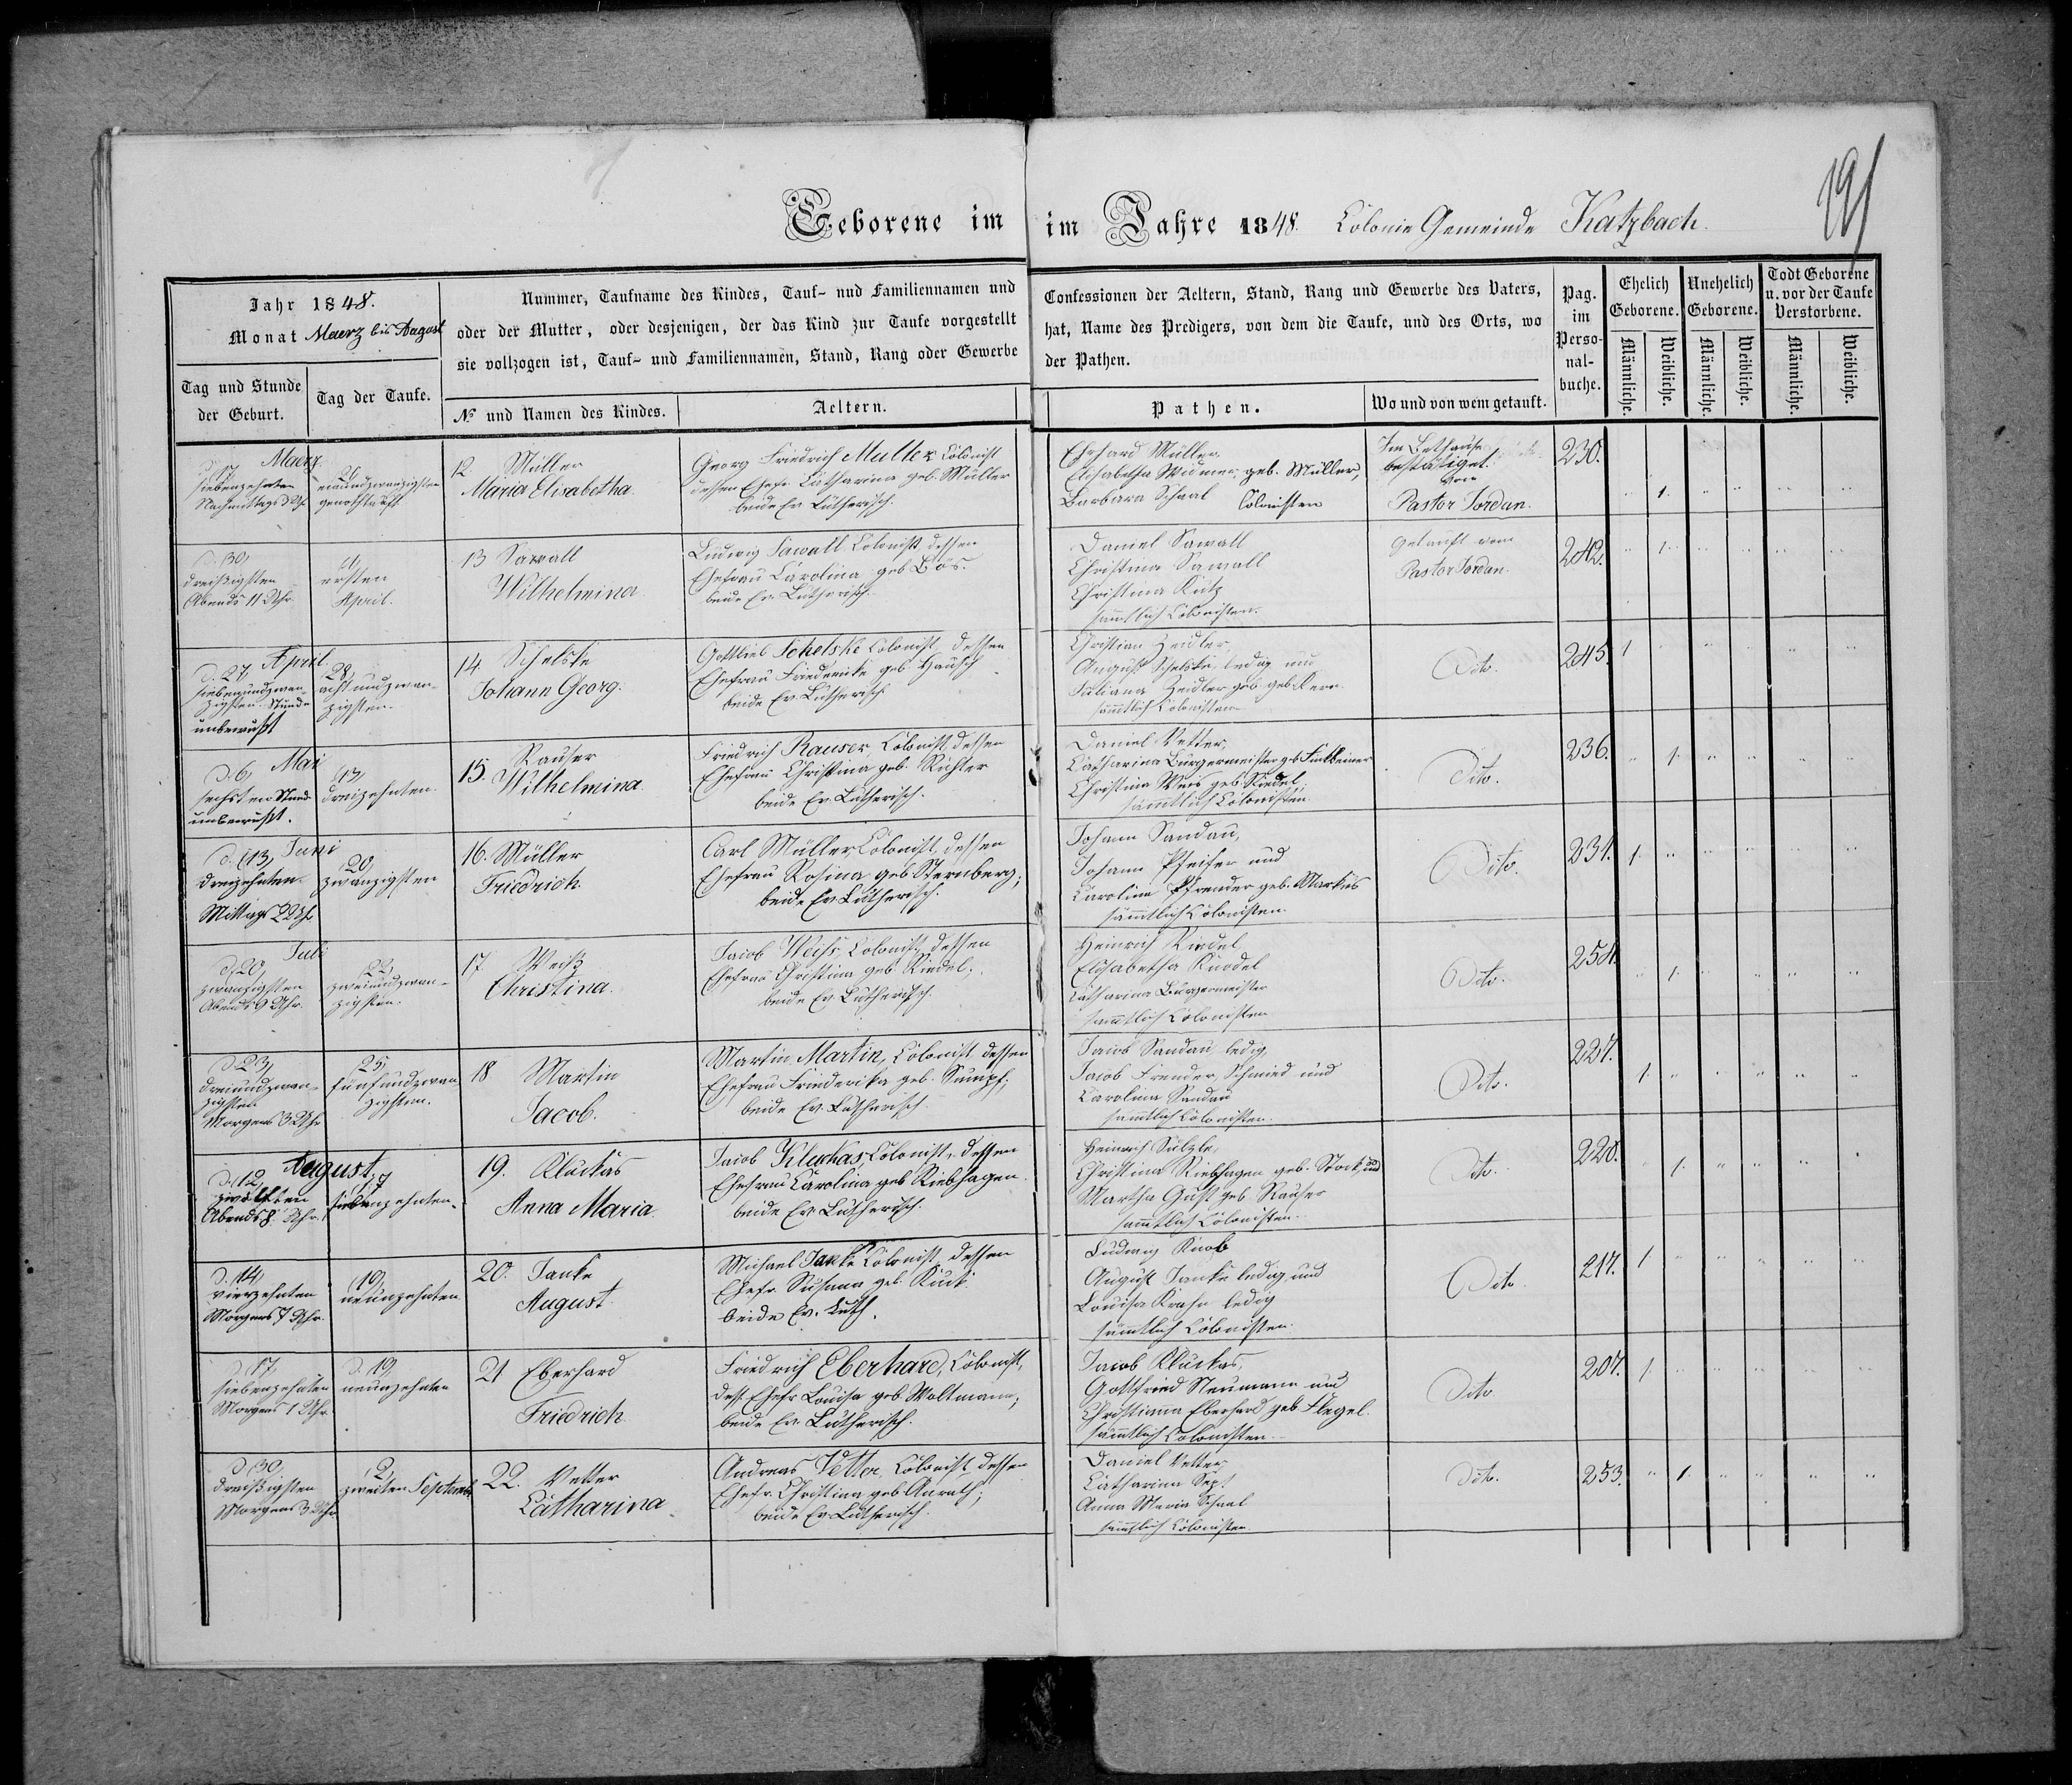 191
Geborene im im Jahre 1848. Colonie Gemeinde Katzbach.
Jahr 1848.
Monat Maerz bis August
Tag und Stunde der Geburt.
Tag der Taufe.
Nummer, Taufname des Kindes, Tauf- und Familiennamen und
oder der Mutter, oder desjenigen, der das Kind zur Taufe vorgestellt
sie vollzogen ist, Tauf- und Familiennamen, Stand, Rang oder Gewerbe
№ und Namen des Kindes.
Aeltern.
Confessionen der Aeltern, Stand, Rang und Gewerbe des Vaters,
hat, Name des Predigers, von dem die Taufe, und des Orts, wo
der Pathen.
Pathen.
Wo und von wem getauft.
Pag. im Perso-nal-buche.
Ehelich Geborene.
Unehelich Geborene.
Todt Geborene u. vor der Taufe Verstorbene.
Männliche.
Weibliche.
Männliche.
Weibliche.
Männliche.
Weibliche.
Maerz
siebenzehnten
Nachmittags 3 Uhr
genothtauft
12. Müller
Maria Elisabetha.
Georg Friedrich Muller Colonist
dessen Ehefr Catharina geb. Müller
beide Ev Lutherisch.
Ehrhard Müller
Elisabetha Widmer geb. Müller,
Barbara Schaal Colonisten
Im Bethause
bestätiget.
von
Pastor Jordan.
230.
1.
d. 30,
dreißigsten
Abends 11 Uhr.
1,
ersten
April.
13 Sawall
Wilhelmina
Ludwig Sawall Colonist dessen
Ehefrau Carolina geb Bös.
beide Ev. Lutherisch.
Daniel Sawall
Christina Sawall
Christina Kutz
sämtlich Colonisten.
getauft vom
Pastor Jordan.
242.
1.
April.
d. 27,
siebenundzwan-
zigsten Stunde
unbewußt
28,
achtundzwan-
zigsten.
14. Schelske
Johann Georg.
Gottlieb Schelske Colonist, dessen
Ehefrau Friederike geb. Hausch
beide Ev Lutherisch
Christian Zeidler,
August Schelske, ledig und
Juliana Zeidler geb. Kern.
sämtlich Colonisten
Dito.
245.
1
Mai
d. 6,
sechsten Stunde
unbewußt.
13,
dreizehnten.
15. Rauser
Wilhelmina.
Friedrich Rauser Colonist dessen
Ehefrau Christina geb. Richter
beide Ev. Lutherisch.
Daniel Vetter,
Catharina Bürgermeister geb Finkbeiner
Christina Weis geb. Riedel,
sämmtlich Colonisten.
Dito.
236.
1.
Juni
d. 13,
dreizehnten
Mittags 2 Uhr
20,
zwanzigsten
16. Müller
Friedrich
Carl Müller, Colonist, dessen
Ehefrau Rosina geb. Sternberg;
beide Ev Lutherisch.
Johann Sandau,
Johann Pfeifer und
Carolina Pfrender geb. Markus
sämmtlich Colonisten.
Dito.
231.
1.
Juli
d. 20,
zwanzigsten
Abends 9 Uhr.
22,
zweiundzwan-
zigsten.
17 Weiß
Christina.
Jacob Weihs, Colonist, dessen
Ehefrau Christina geb. Riedel,
beide Ev. Lutherisch.
Heinrich Riedel
Elisabetha Knodel
Catharina Bürgermeister
sämmtlich Colonisten
Dito.
254.
1.
d. 23,
dreiundzwan-
zigsten
Morgens 3 Uhr
25,
fünfundzwan-
zigsten.
18 Martin
Jacob.
Martin Martin, Colonist dessen
Ehefrau Friederika geb. Sumpf,
beide Ev. Lutherisch.
Jacob Sandau ledig,
Jacob Frender, Schmied und
Carolina Sandau
sämtlich Colonisten
Dito.
227.
1.
August,
d. 12,
zwölften
Abends 8 Uhr
17
siebenzehnten.
19. Kluckas
Anna Maria.
Jacob Kluckas, Colonist, dessen
Ehefrau Carolina geb Riebhagen.
beide Ev. Lutherisch.
Heinrich Sülzle,
Christina Riebhagen geb. Stock, und
Martha Gust geb. Rauser
sämtlich Colonisten.
Dito.
220.
1.
d. 14,
vierzehnten
Morgens 7 Uhr.
19,
neunzehnten
20. Janke
August.
Michael Janke Colonist, dessen
Ehefr. Susanna geb. Kuck
beide Ev. Luth.
Ludwig Knob
August Janke ledig und
Louisa Krahn ledig
sämtlich Colonisten.
Dito
217.
1
d. 17,
siebenzehnten
Morgens 1 Uhr.
d. 19,
neunzehnten
21 Eberhard
Friedrich
Friedrich Eberhard, Colonist,
dess. Ehefr Louisa geb. Woltmann;
beide Ev. Lutherisch.
Jacob Kluckas,
Gottfried Neumann und
Christiana Eberhard geb. Flegel.
sämmtlich Colonisten.
Dito.
207.
1.
d. 30,
dreißigsten
Morgens 3 Uhr
2,
zweiten September
22. Vetter
Catharina
Andreas Vetter, Colonist dessen
Ehefr. Christina geb. Anrath;
beide Ev. Lutherisch.
Daniel Vetter,
Catharina
Anna Maria Schaal
sämtlich Colonisten.
Dito.
253.
1.